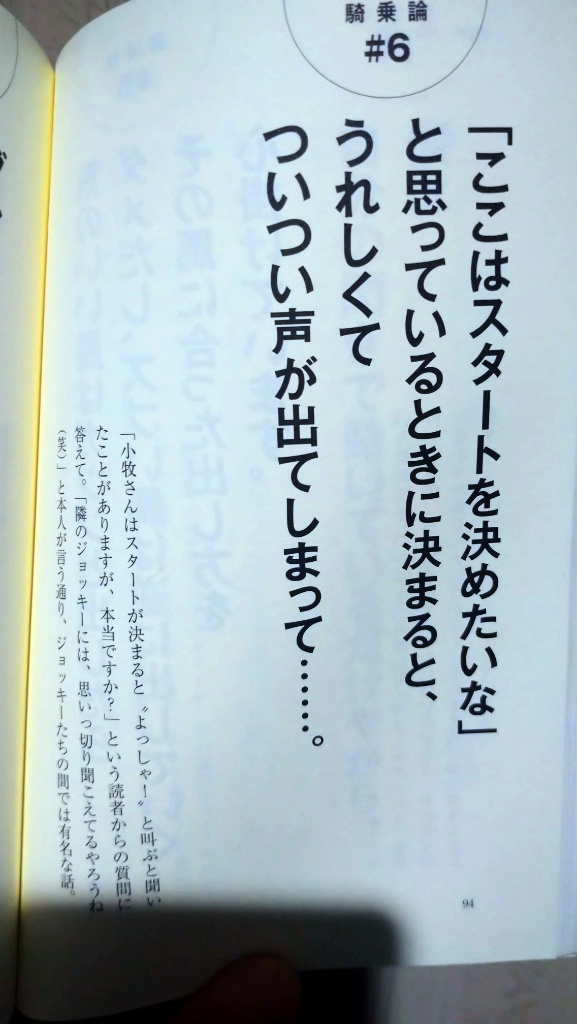 騎乗論
#6
「ここはスタートを決めたいな」
と思っているときに決まると、
うれしくて
ついつい声が出てしまって……。
「小牧さんはスタートが決まると〝よっしゃ!〟と叫ぶと聞い
たことがありますが、本当ですか?」という読者からの質問に
答えて。「隣のジョッキーには、思いっ切り聞こえてるやろうね
(笑)」と本人が言う通り、ジョッキーたちの間では有名な話。
94